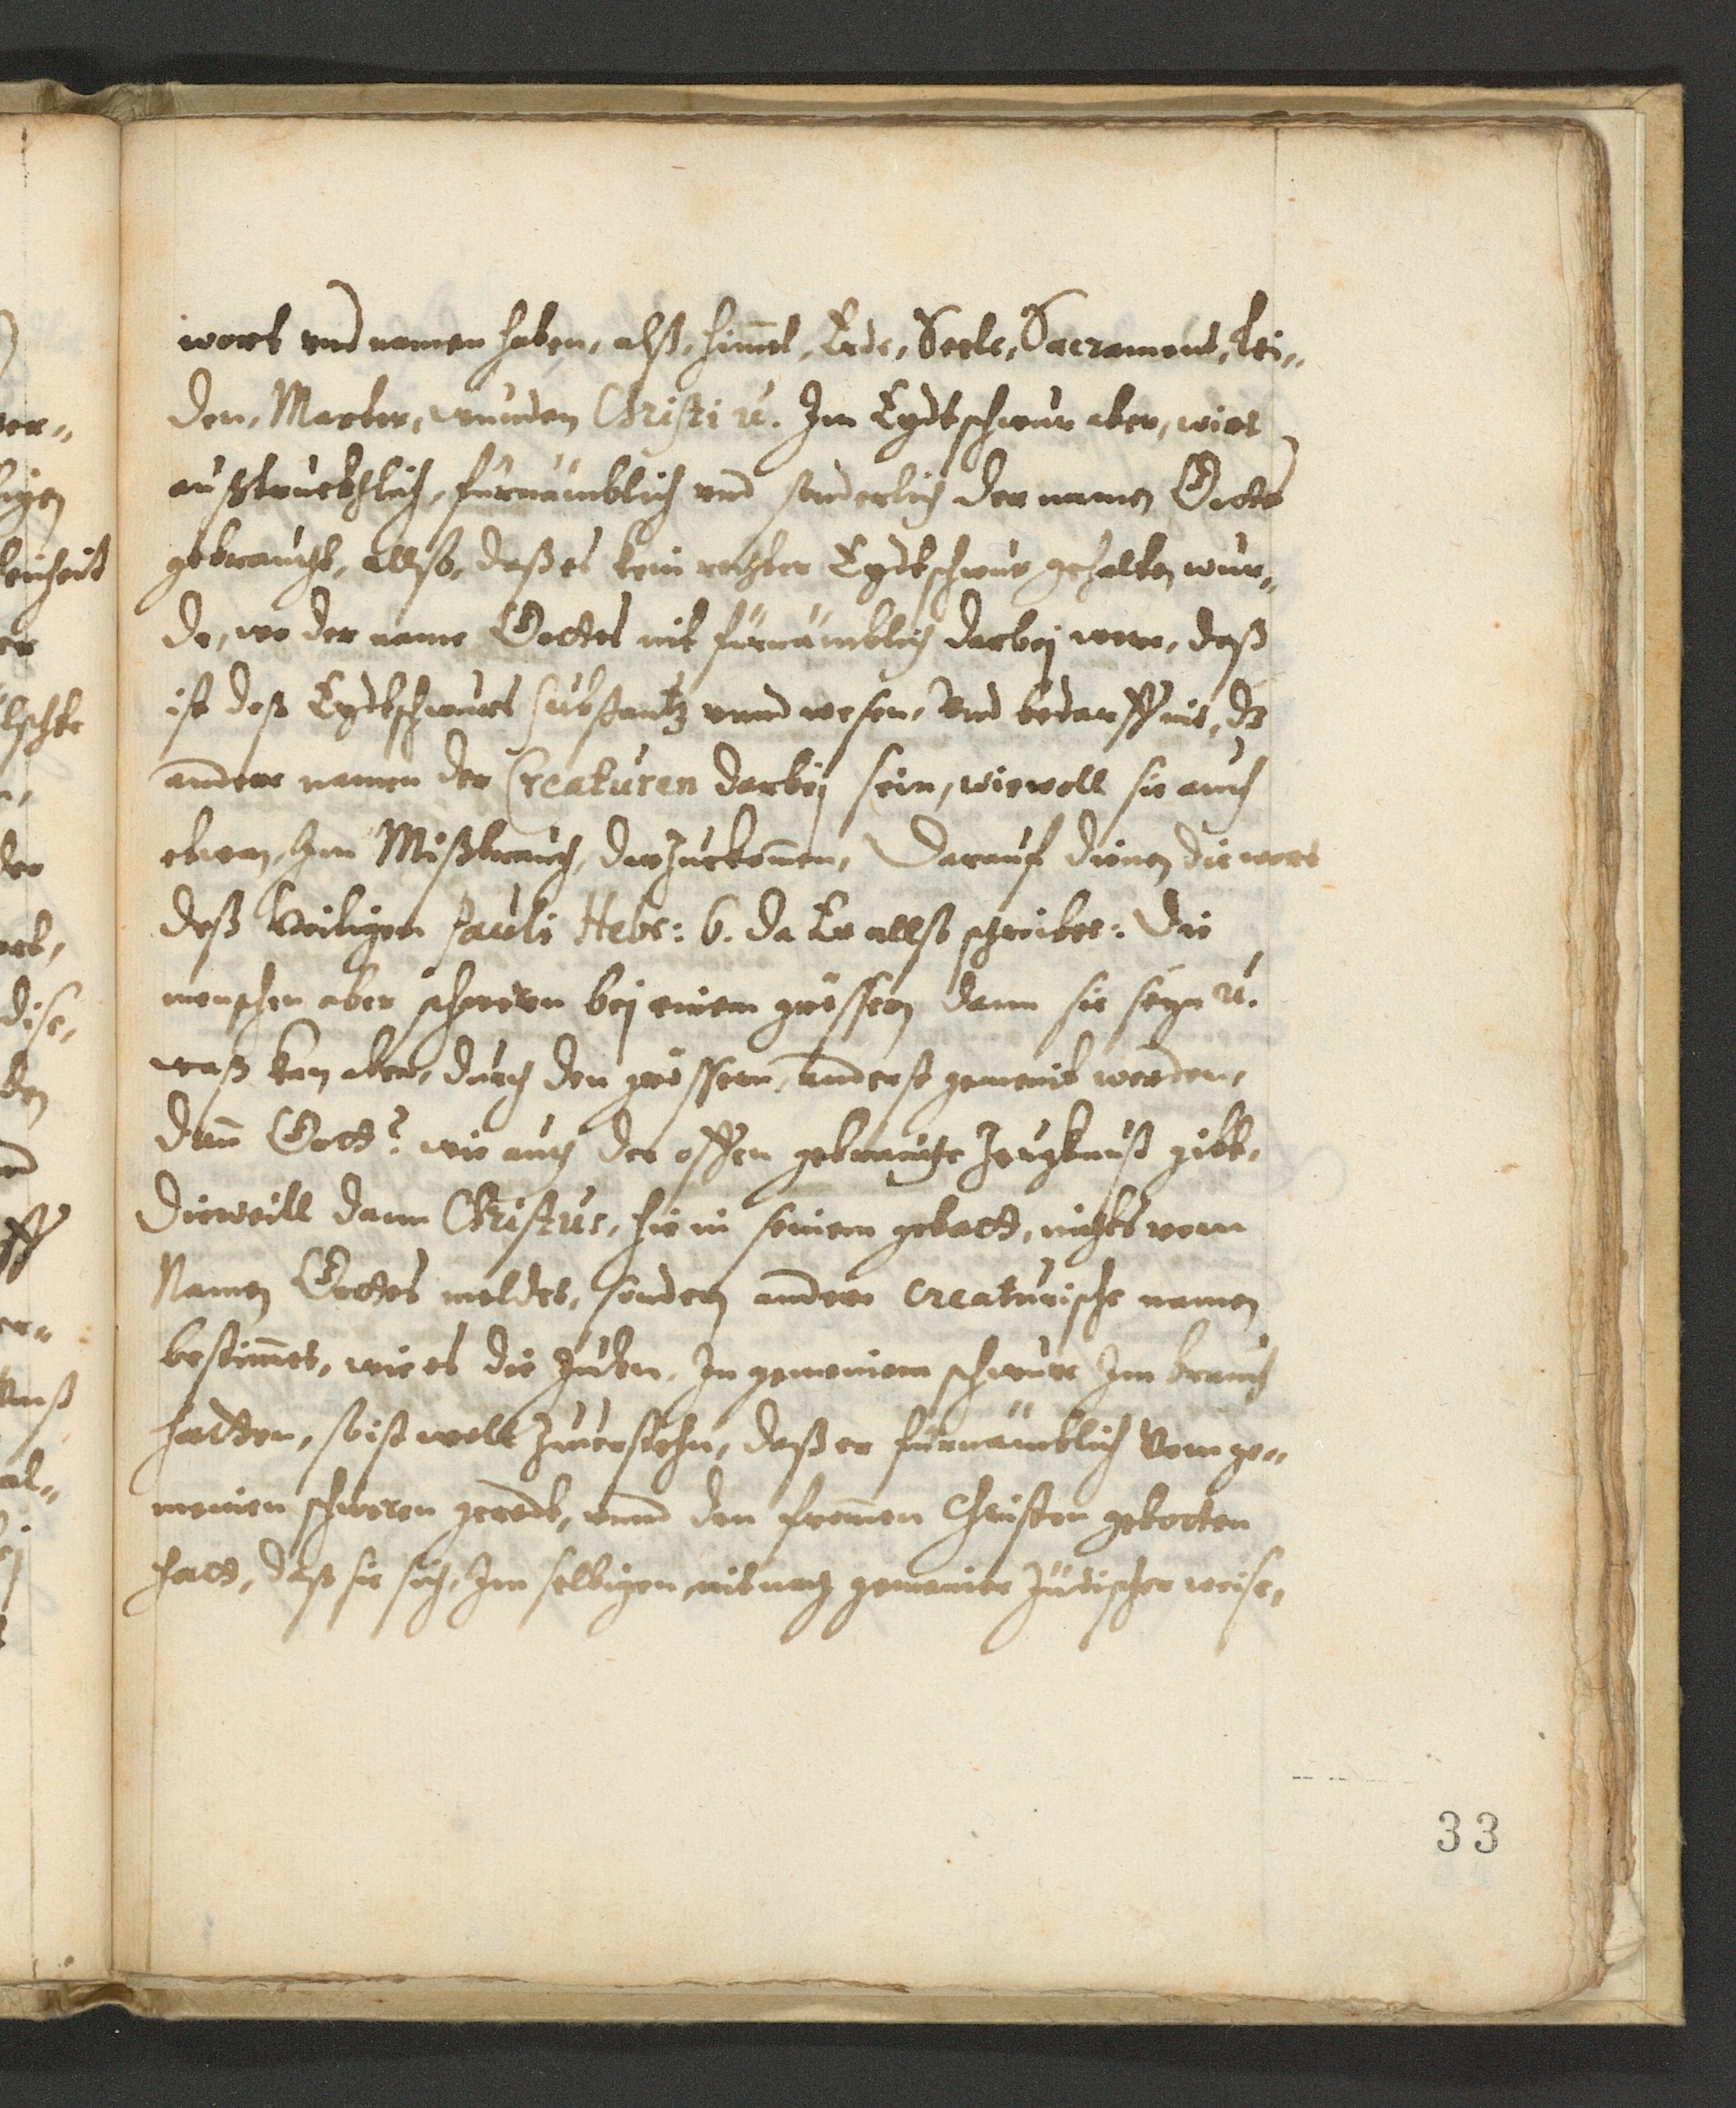 wort vnd namen haben, alß, himel, Erde, Seele, Sacrament, Lei„
den, Marter, wunden Christi ꝛc. Im Eydtschwur aber, wirt
außtruckhlich, fürnämblich vnd sonderlich der namen Gottes
gebraucht, allso, daß es kein rechter Eydtschwur gehalten wur„
de, wo der name Gottes nit fürnämblich darbej were, daß
ist deß Eydtschwurs substantz vnnd wesen, Vnd bedarff nit, dz
andere namen der Creaturen darbej sein, wiewoll sie auch
etwan, Im Mißbrauch, darzukomen, Darauf dienen die wort
deß heiligen Pauli Hebr: 6. da Er allso schreibet: Die
menschen aber schweren bej einem grössern dann sie seyn ꝛc.
waß kan aber, durch den grössern, anderst gemeint werden,
dann Gott? wie auch der offen gebrauchte Zeugknuß gibt,
Dieweill dann Christus, hie in seinem gebott, nichts vom
Namen Gottes meldet, sondern andere creaturische namen
bestimet, wie es die Juden, In gemeinem schwure Im brauch
hatten, so ist woll Zuuerstehn, daß er fürnämblich Vom ge„
meinen schweren geredt, vnnd den fromen Christen gebotten
hatt, daß sie sich, Im selbigen, nit nach gemeiner Jüdischer weise,
33